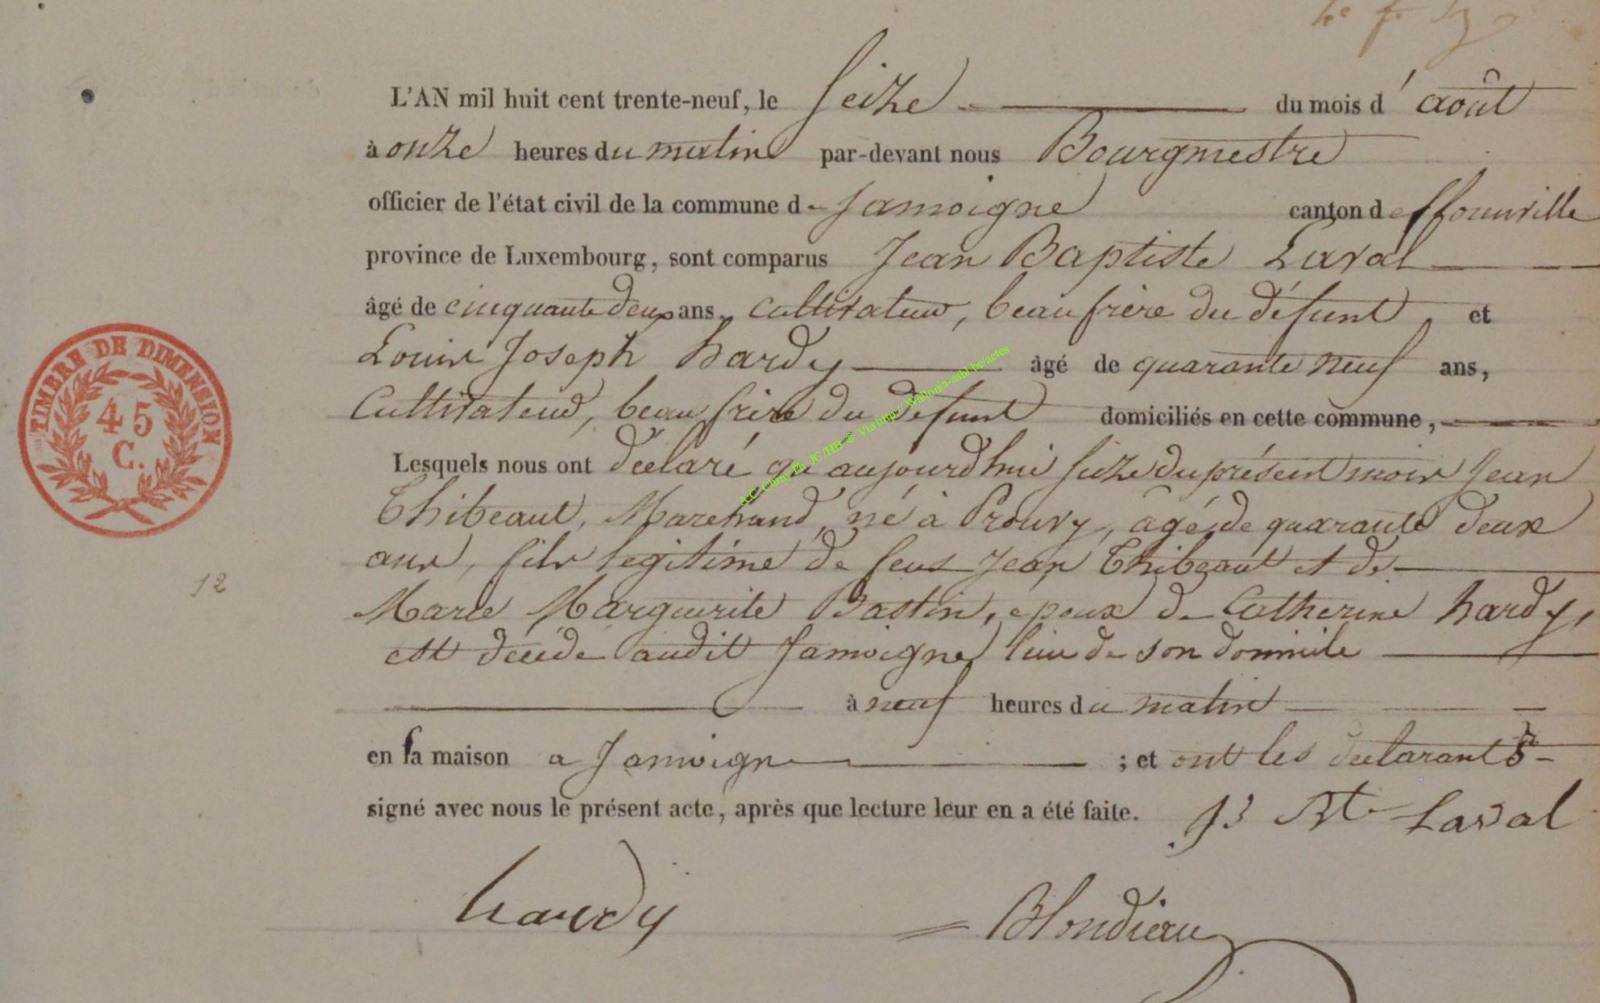 L'AN mil huit cent trente-neuf, le seize du mois d'août
à onze heures du matin par-devant nous Bourgmestre
officier de l'état civil de la commune de Jamoigne canton de fflounville
province de Luxembourg, sont comparus Jean Baptiste Laval
âgé de cinquante deux ans, cultivateur, beau frère du défunt et
Louis Joseph hardy âgé de quarante neuf ans,
Cultivateur, beau frère du défunt domiciliés en cette commune,
Lesquels nous ont déclaré qu'aujourd'hui seize du présent mois Jean
Thibeaut, Marchand, né à Prouvy, âgé de quarante deux
ans, fils legitime de feus Jean Thibeaut et de
Marie Marguerite Bastin, epoux de Catherine hardy,
est décédé audit Jamoigne lieu de son domicile
à neuf heures du matin
en sa maison a Jamoigne ; et ont les declarants
signé avec nous le présent acte, après que lecture leur en a été faite. JB Bte Laval
hardy Blondiau
TIMBRE DE DIMENSION
45
C.
12